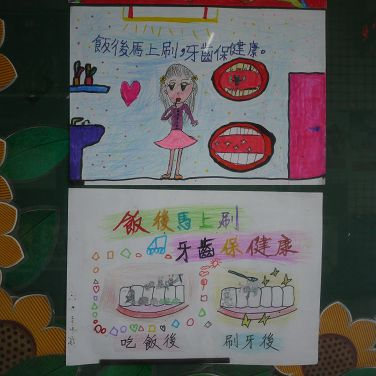 飯後馬上刷,牙齒保健康。
飯後馬上刷
牙齒保健康
吃飯後
刷牙後